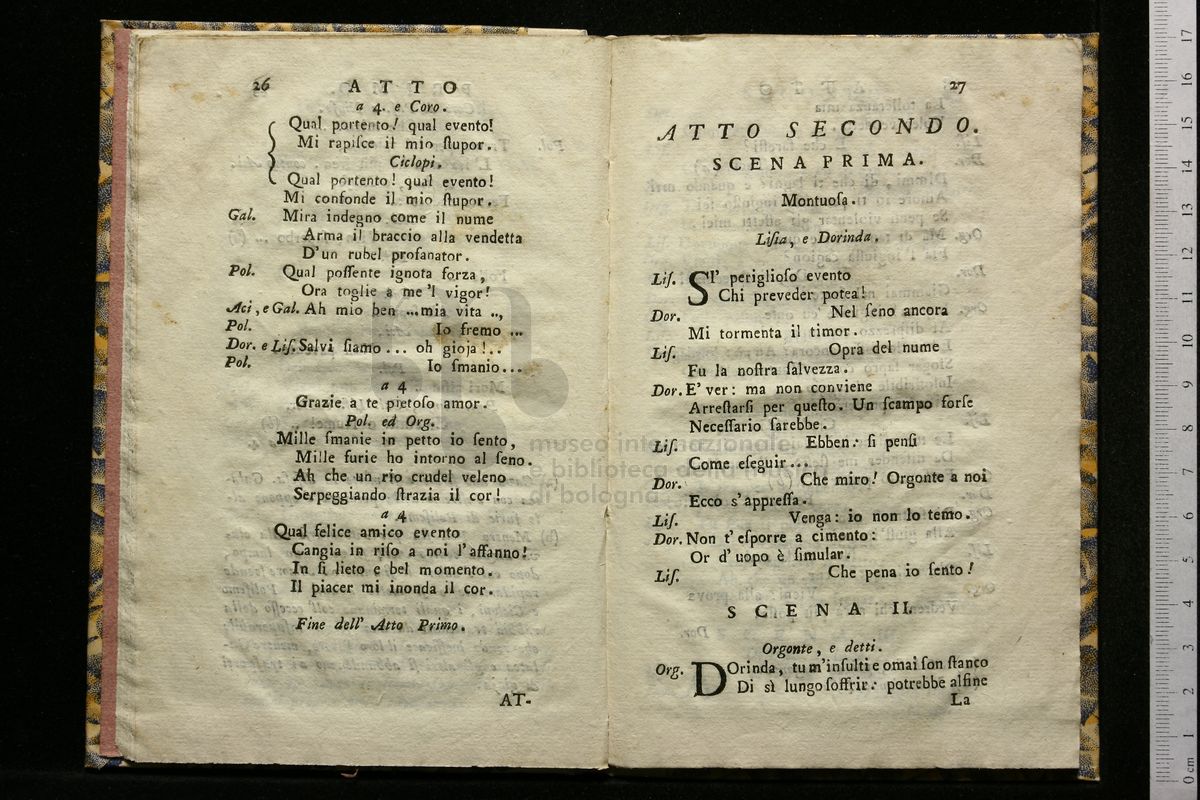 26 ATTO
a 4. e Coro.
Qual portento! qual evento!
Mi rapiſce il mio ſtupor.
Ciclopi.
Qual portento! qual evento!
Mi confonde il mio ſtupor.
Gal. Mira indegno come il nume
Arma il braccio alla vendetta
D'un rubel profanator.
Pol. Qual poſſente ignota forza,
Ora toglie a me 'l vigor!
Aci, e Gal. Ah mio ben ...mia vita ..,
Pol. Io fremo ...
Dor. e Liſ. Salvi ſiamo ... oh gioja!..
Pol. Io ſmanio...
a 4
Grazie a te pietoſo amor.
Pol. ed Org.
Mille ſmanie in petto io ſento,
Mille furie ho intorno al ſeno.
Ah che un rio crudel veleno
Serpeggiando ſtrazia il cor!
a 4
Qual felice amico evento
Cangia in riſo a noi l'affanno!
In ſi lieto e bel momento.
Il piacer mi inonda il cor.
Fine dell' Atto Primo.
AT-
27
ATTO SECONDO.
SCENA PRIMA.
Montuoſa.
Liſia, e Dorinda.
Liſ. SI' periglioſo evento
Chi preveder potea!
Dor. Nel ſeno ancora
Mi tormenta il timor.
Liſ. Opra del nume
Fu la noſtra ſalvezza.
Dor. E' ver: ma non conviene
Arreſtarſi per queſto. Un ſcampo forſe
Neceſſario ſarebbe.
Liſ. Ebben: ſi penſi
Come eſeguir...
Dor. Che miro! Orgonte a noi
Ecco s'appreſſa.
Liſ. Venga: io non lo temo.
Dor. Non t'eſporre a cimento:
Or d'uopo è ſimular.
Liſ. Che pena io ſento!
SCENA II.
Orgonte, e detti.
Org. DOrinda, tu m'inſulti e omai ſon ſtanco
Di sì lungo ſoffrir: potrebbe alfine
La
museo internazionale
e biblioteca della musica
di bologna
0 cm 1 2 3 4 5 6 7 8 9 10 11 12 13 14 15 16 17